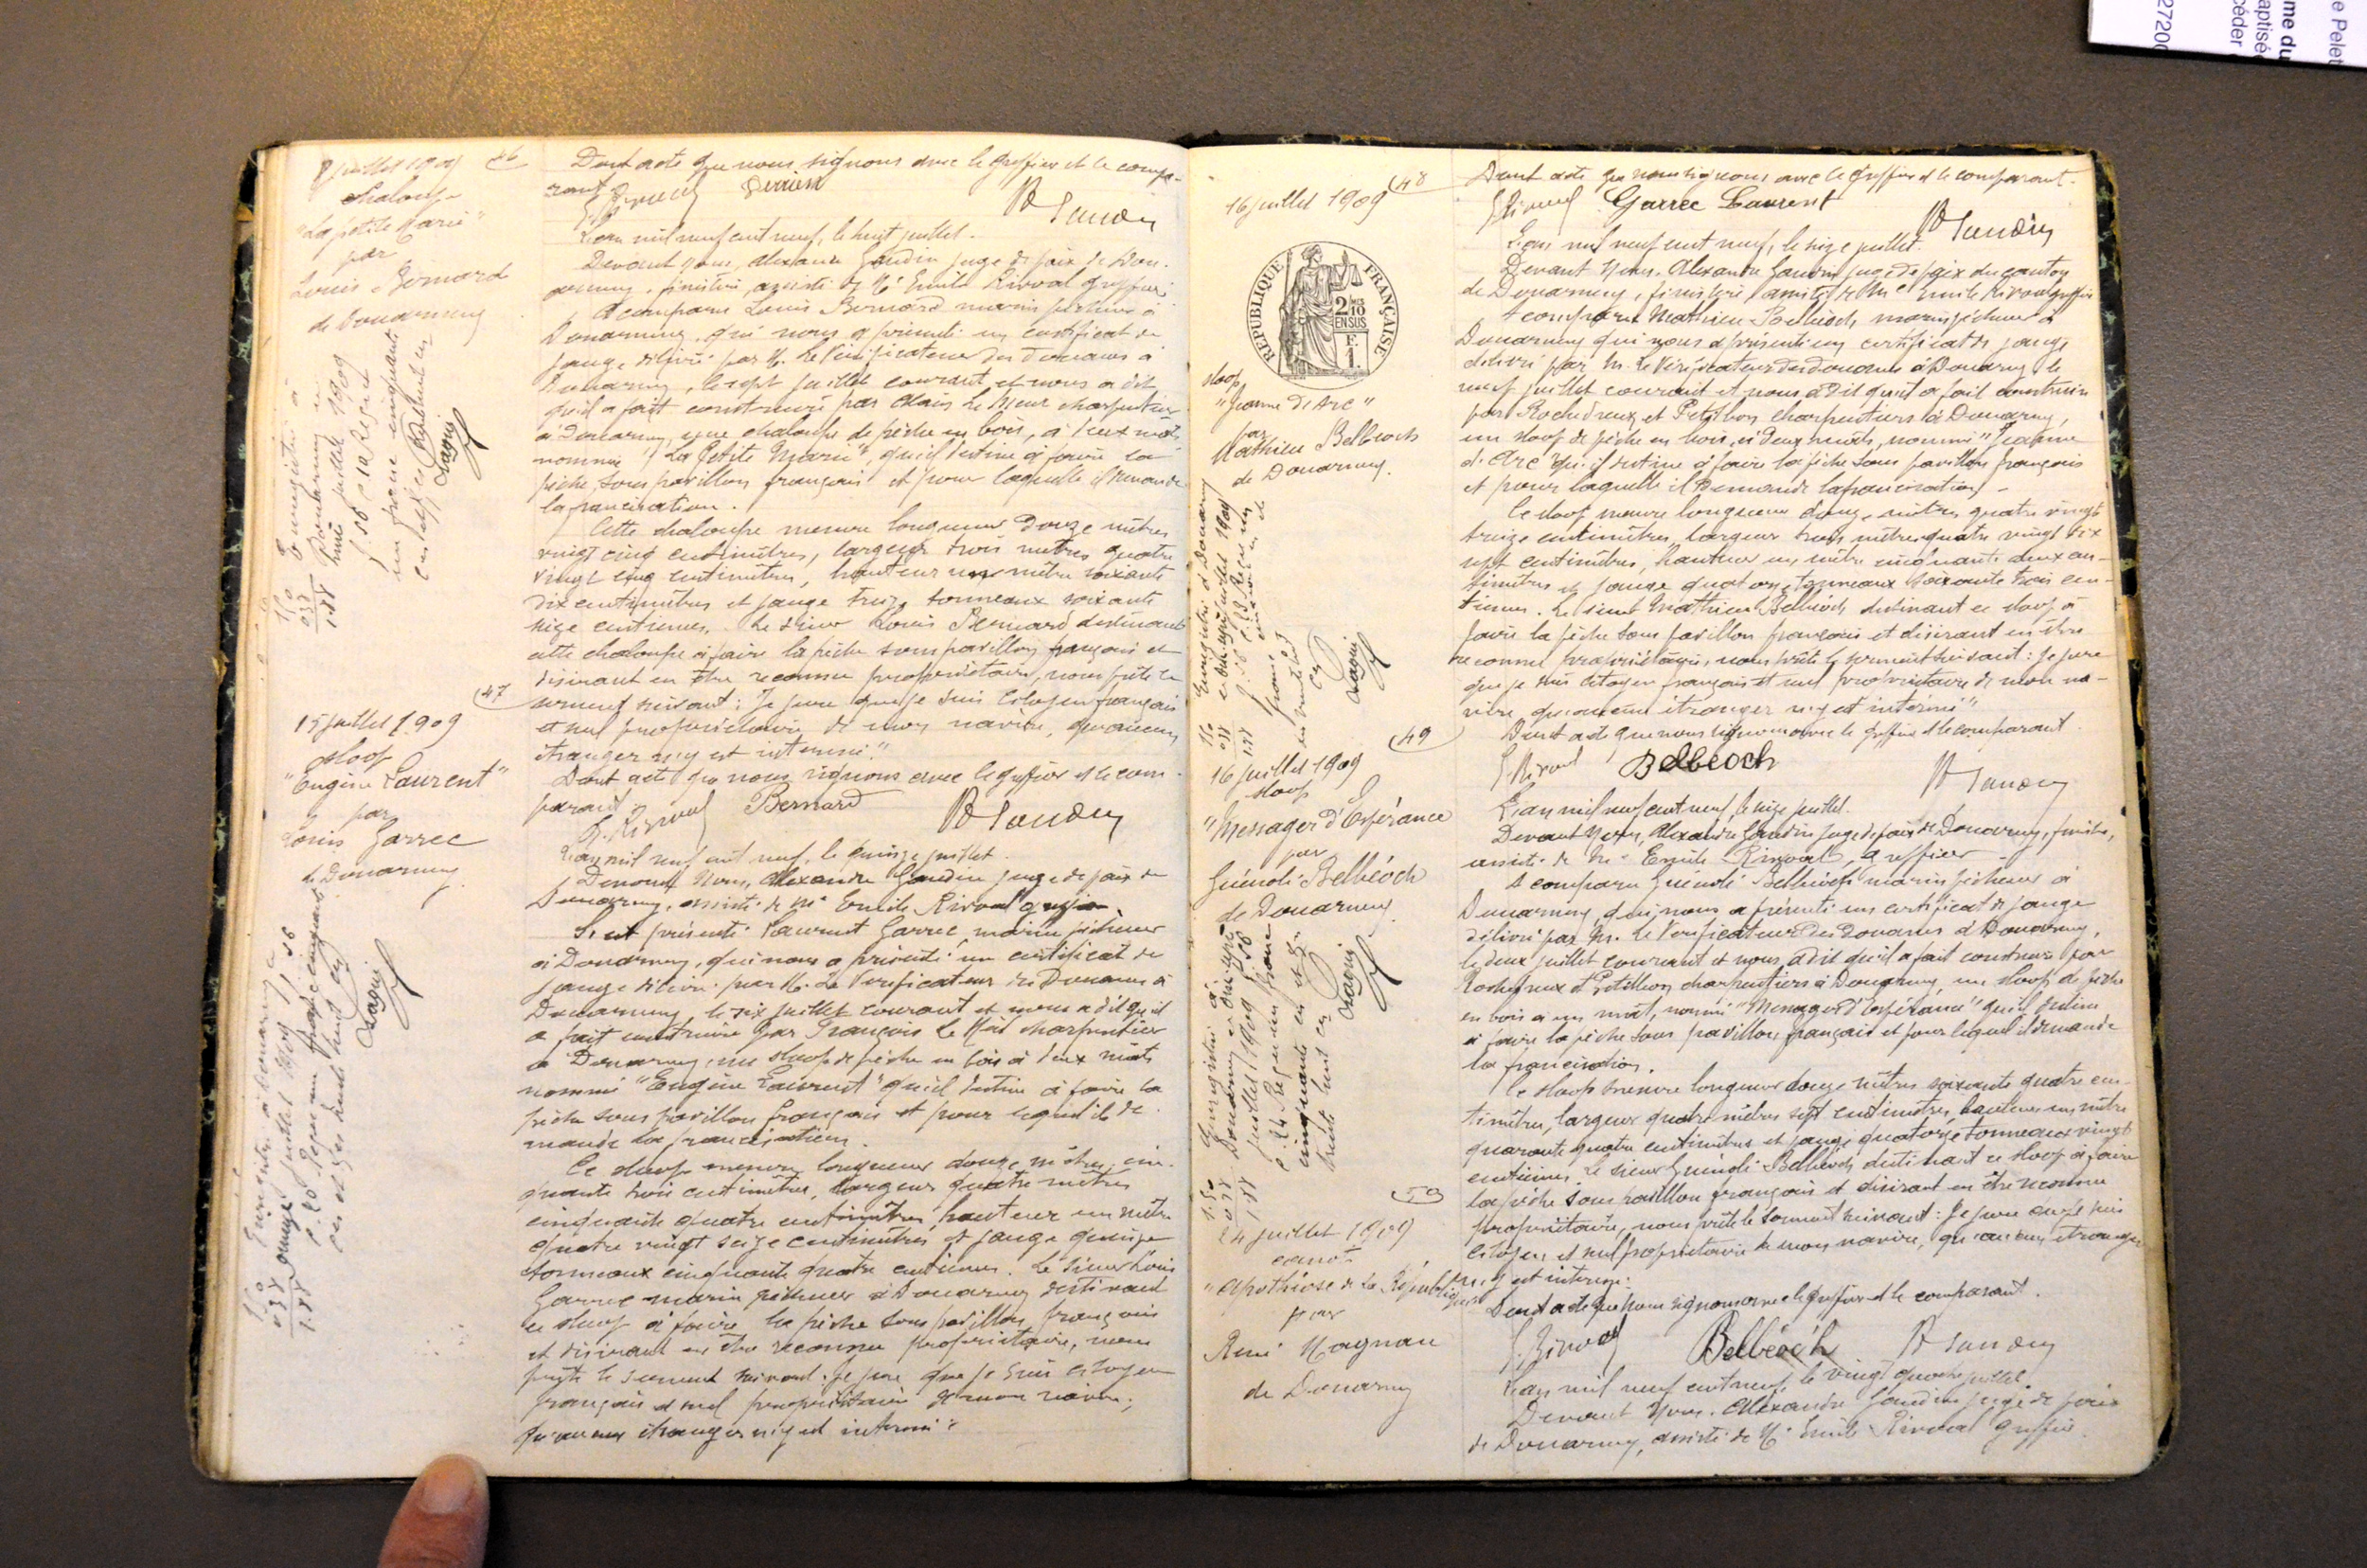 8 juillet 1909
46
chaloupe
"La petite Marie"
par
Louis Bernard
de Douarnenez
Enregistré à
Douarnenez le
huit juillet 1909
un franc cinquante
1 50
0 38
1.88
Dont acte que nous signons avec le greffier et le compa-
rant
E Rivoal Derrien A Gaudin
L'an mil neuf cent neuf, le huit juillet.
Devant nous, Alexandre Gaudin juge de paix de Dou-
arnenez, finistère, assisté de Me Emile Rivoal greffier
A comparu Louis Bernard marin pêcheur à
Douarnenez, qui nous a présenté un certificat de
jauge délivré par M. le Vérificateur des Douanes à
Douarnenez, le sept juillet courant et nous a dit
qu'il a fait construire par Alain Le Meur charpentier
à Douarnenez, une chaloupe de pêche en bois, à deux mâts
nommée "La Petite Marie", qu'il destine à faire la
pêche sous pavillon français et pour laquelle il demande
la francisation.
Cette chaloupe mesure longueur douze mètres
vingt cinq centimètres, largeur trois mètres quatre
vingt cinq centimètres, hauteur un mètre soixante
dix centimètres et jauge treize tonneaux soixante
seize centièmes. Le sieur Louis Bernard destinant
cette chaloupe à faire la pêche sous pavillon français et
désirant en être reconnu propriétaire, nous prête le
serment suivant: Je jure que je suis citoyen français
et seul propriétaire de mon navire, qu'aucun
étranger n'y est intéressé."
Dont acte que nous signons avec le greffier et le com-
parant.
E. Rivoal Bernard A Gaudin
47
15 juillet 1909
sloop
"Eugène Laurent"
par
Louis Garrec
de Douarnenez
Enregistré à Douarnenez le
quinze juillet 1909
Reçu un franc cinquante
1 50
0 38
1.88
L'an mil neuf cent neuf, le quinze juillet.
Devant Nous, Alexandre Gaudin juge de paix de
Douarnenez, assisté de Me Emile Rivoal greffier.
S'est présenté Laurent Garrec, marin pêcheur
à Douarnenez, qui nous a présenté un certificat de
jauge délivré par M. Le Vérificateur des Douanes à
Douarnenez, le six juillet courant et nous a dit qu'il
a fait construire par François Le charpentier
à Douarnenez, un sloop de pêche en bois à deux mâts
nommé "Eugène Laurent" qu'il destine à faire la
pêche sous pavillon français et pour lequel il de-
mande la francisation.
Ce sloop mesure longueur douze mètres cin-
quante trois centimètres, largeur quatre mètres
cinquante quatre centimètres, hauteur un mètre
quatre vingt seize centimètres et jauge quinze
tonneaux cinquante quatre centièmes. Le sieur Louis
Garrec marin pêcheur à Douarnenez destinant
ce sloop à faire la pêche sous pavillon français
et désirant en être reconnu propriétaire, nous
prête le serment suivant: Je jure que je suis citoyen
français et seul propriétaire de mon navire,
qu'aucun étranger n'y est intéressé"
48
16 juillet 1909
REPUBLIQUE FRANÇAISE
2/10 EN SUS
F. 1.
sloop
"Jeanne d'Arc"
par
Mathieu Belbeoch
de Douarnenez.
Enregistré à Douarnenez
1909
1 50
0 38
1.88
Dont acte que nous signons avec le greffier et le comparant.
E Rivoal Garrec Laurent A Gaudin
L'an mil neuf cent neuf, le seize juillet.
Devant Nous, Alexandre Gaudin juge de paix du canton
de Douarnenez, finistère, assisté de Me Emile Rivoal greffier
A comparu Mathieu Belbéoch, marin pêcheur à
Douarnenez qui nous a présenté un certificat de jauge
délivré par M. le Vérificateur des douanes à Douarnenez le
neuf juillet courant et nous a dit qu'il a fait construire
par Rochedreux et Petitbon charpentiers à Douarnenez,
un sloop de pêche en bois, à deux mâts, nommé "Jeanne
d'Arc" qu'il destine à faire la pêche sous pavillon français
et pour laquelle il demande la francisation.
Ce sloop mesure longueur douze mètres quatre vingt
treize centimètres, largeur trois mètres quatre vingt dix
sept centimètres, hauteur un mètre cinquante deux cen-
timètres et jauge quatorze tonneaux soixante trois cen-
tièmes. Le sieur Mathieu Belbéoch destinant ce sloop à
faire la pêche sous pavillon français et désirant en être
reconnu propriétaire, nous prête le serment suivant: Je jure
que je suis citoyen français et seul propriétaire de mon na-
vire, qu'aucun étranger n'y est intéressé"
Dont acte que nous signons avec le greffier et le comparant.
E Rivoal Belbeoch A Gaudin
49
16 juillet 1909
sloop
"Messager d'Espérance
par
Guénolé Belbéoch
de Douarnenez.
Enregistré à
Douarnenez le
juillet 1909
un franc
cinquante
1.50
0 38
1 88
L'an mil neuf cent neuf, le seize juillet.
Devant Nous, Alexandre Gaudin juge de paix de Douarnenez, finistère,
assisté de Me Emile Rivoal, greffier
A comparu Guénolé Belbéoch marin pêcheur à
Douarnenez, qui nous a présenté un certificat de jauge
délivré par M. Le Vérificateur des Douanes à Douarnenez,
le deux juillet courant et nous a dit qu'il a fait construire par
Rochedreux et Petitbon charpentiers à Douarnenez, un sloop de pêche
en bois à un mât, nommé "Messager d'Espérance" qu'il destine
à faire la pêche sous pavillon français et pour lequel il demande
la francisation.
Ce sloop mesure longueur douze mètres soixante quatre cen-
timètres, largeur quatre mètres sept centimètres, hauteur un mètre
quarante quatre centimètres et jauge quatorze tonneaux vingt
centièmes. Le sieur Guénolé Belbéoch destinant ce sloop à faire
la pêche sous pavillon français et désirant en être reconnu
propriétaire, nous prête le serment suivant: Je jure que je suis
citoyen et seul propriétaire de mon navire, qu'aucun étranger
n'y est intéressé.
Dont acte que nous signons avec le greffier et le comparant.
E. Rivoal Belbéoch A Gaudin
50
24 juillet 1909
canot
"Apothéose de la République
par
René Magnan
de Douarnenez
L'an mil neuf cent neuf, le vingt quatre juillet,
Devant Nous, Alexandre Gaudin juge de paix
de Douarnenez, assisté de Me Emile Rivoal greffier.
e Pelet
me du
aptisé
céder
27200